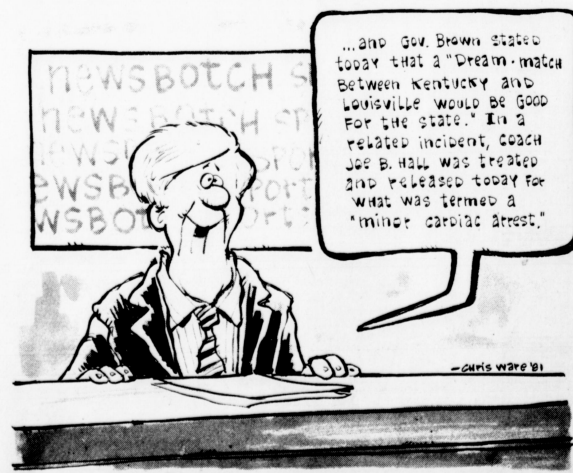 newsBOTCH S
newsBOTCH SP
ewsB SPOR
ewsB port
WSBOT ort
...and Gov. Brown stated
today that a "Dream-match
Between Kentucky and
Louisville would Be Good
For the state." In a
related incident, coach
Joe B. Hall was treated
and released today For
what was termed a
"minor cardiac arrest."
-Chris Ware '81